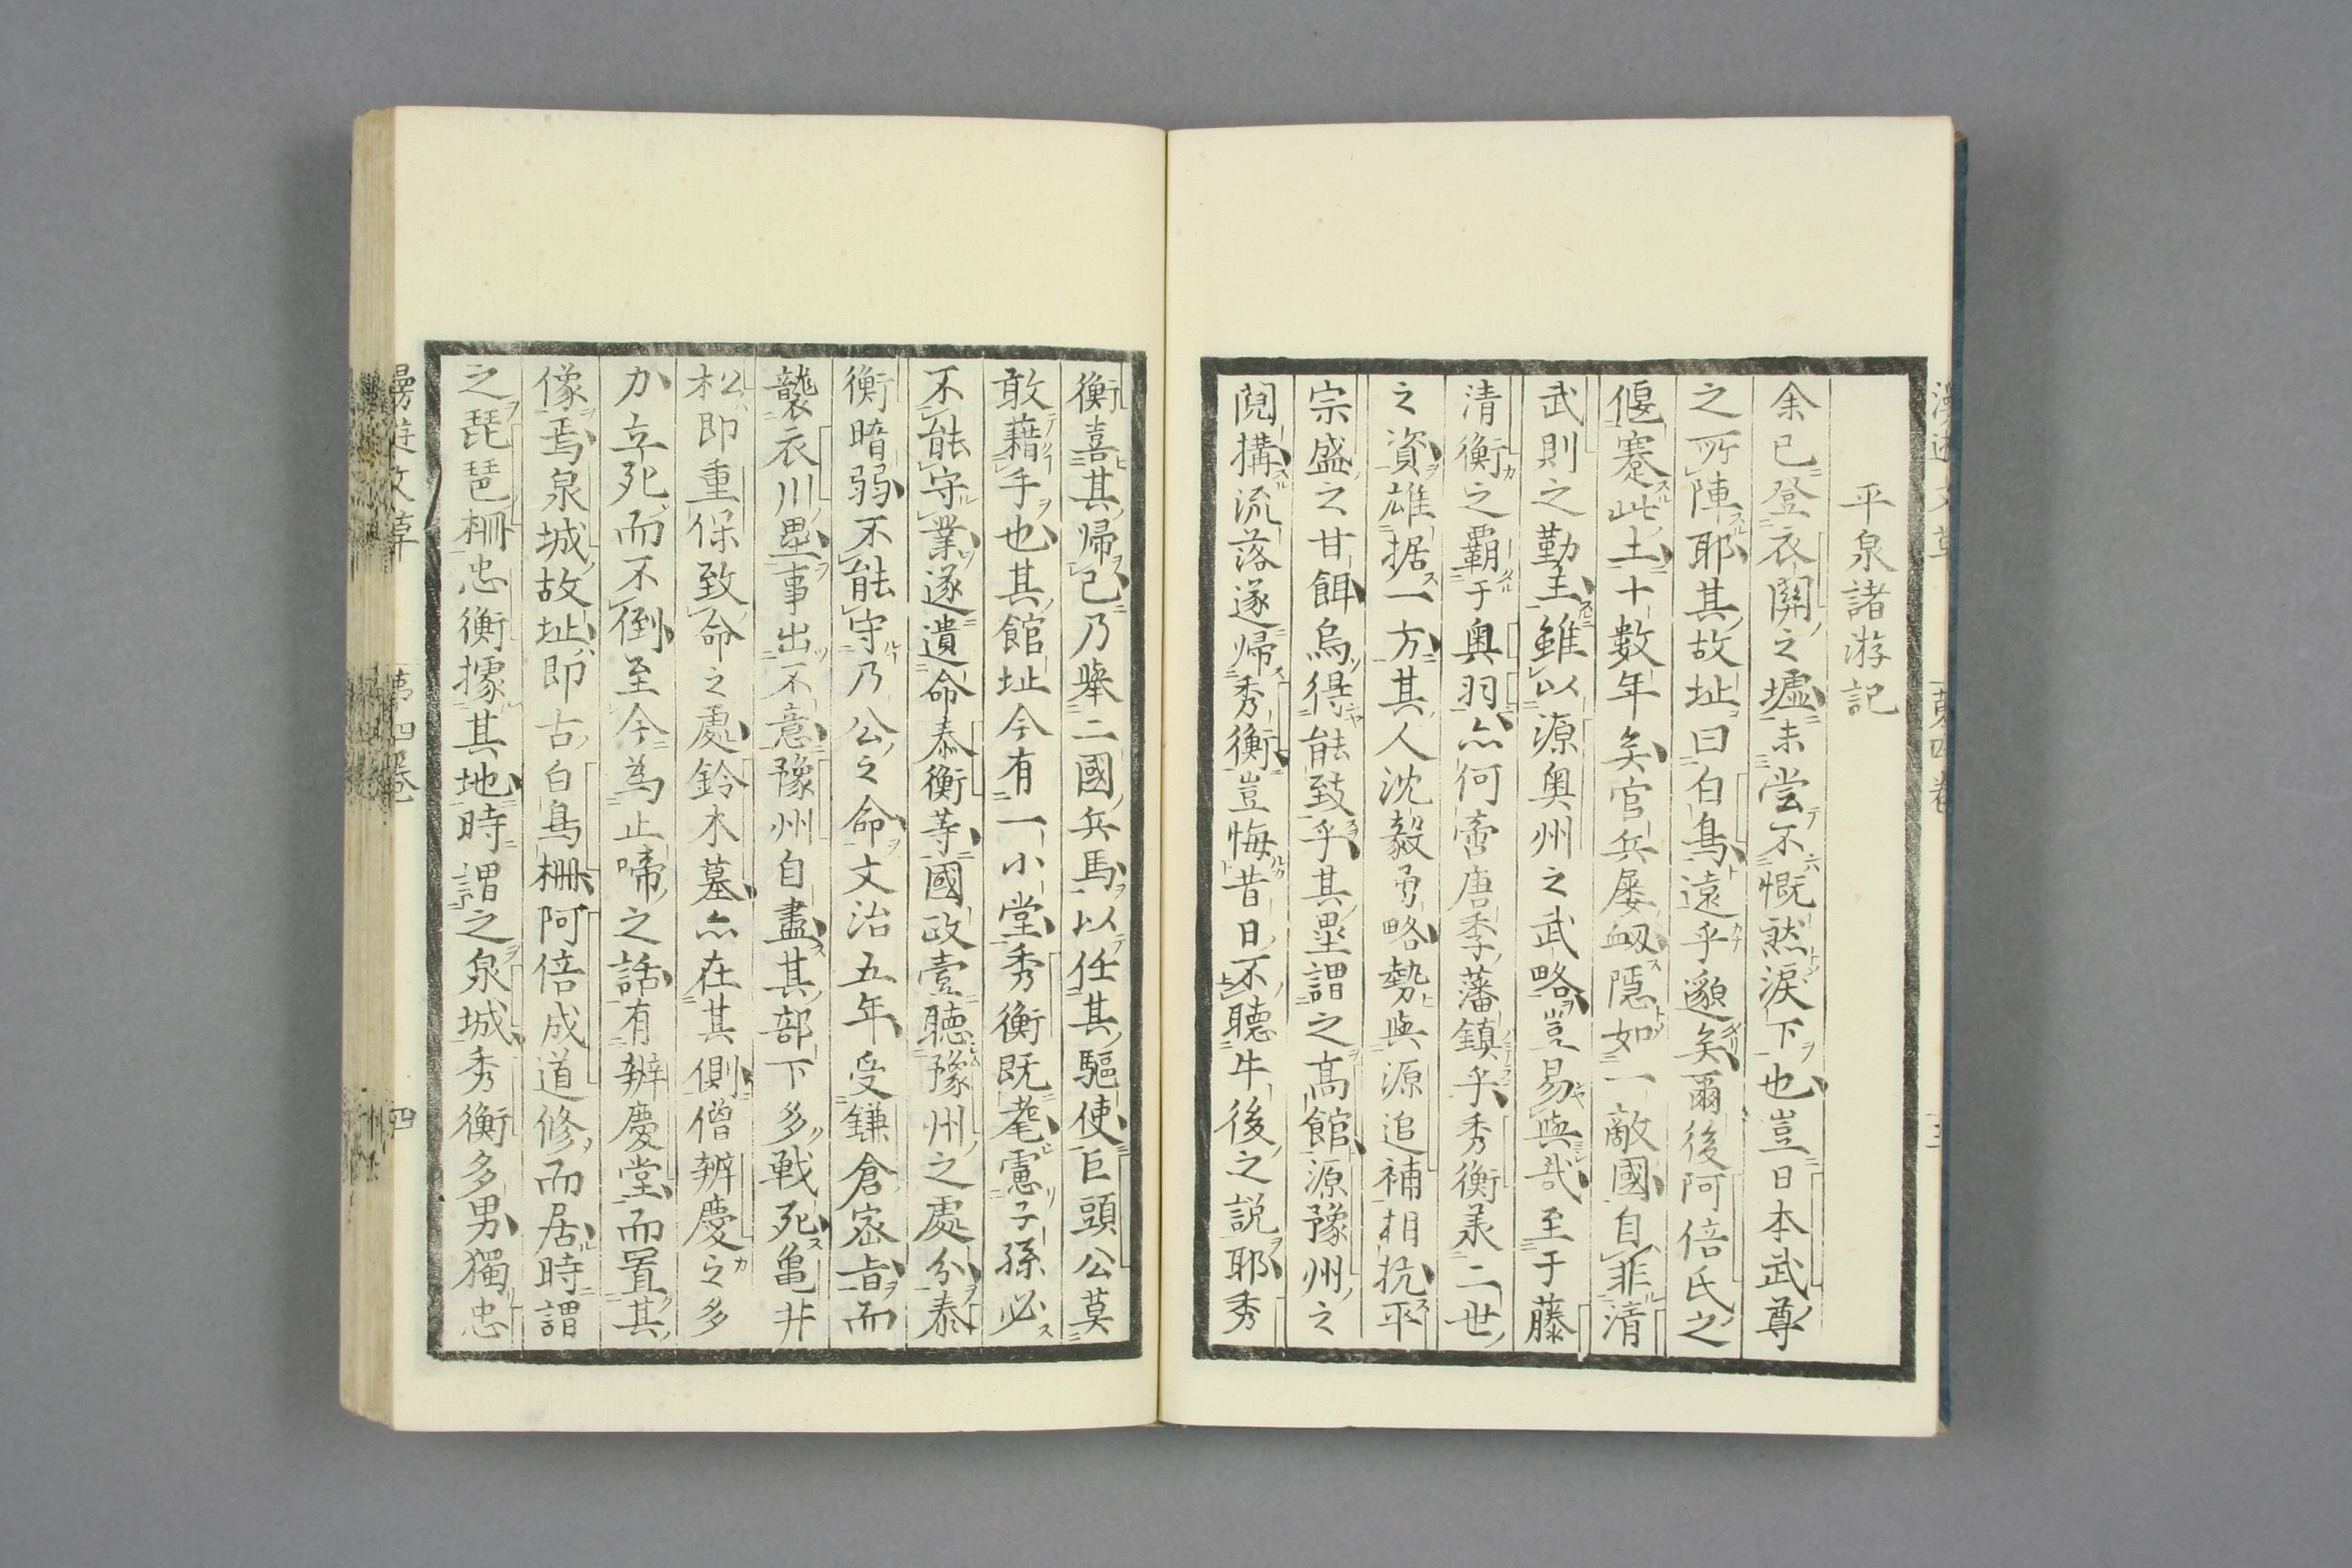 平泉諸游記
余已登衣關之墟未甞不慨然淚下也豈日本武尊
之所陣耶其故址曰白鳥遠乎邈矣爾後阿倍氏之
偃蹇此土十數年矣官兵屡衂隠如一敵國自非清
武則之勤主雖以源奥州之武略豈易與哉至于藤
清衡之覇于奥羽亦何啻唐季藩鎮乎秀衡承二世
之資雄据一方其人沈毅勇略勢與源追補相抗平
宗盛之甘餌烏得能致乎其壘謂之髙館源豫州之
䦧搆流落遂帰秀衡豈悔昔日不聴牛後之説耶秀
衡喜其帰已乃舉二國兵馬以任其驅使巨頭公莫
敢藉手也其館址今有一小堂秀衡既耄慮子孫必
不能守業遂遺命泰衡等國政壹聴豫州之處分泰
衡暗弱不能守乃公之命文治五年受鎌倉密旨而
襲衣川壘事出不意豫州自盡其部下多戦死亀井
松即重保致命之處鈴木墓亦在其側僧辨慶之多
力立死而不倒至今為止啼之話有辨慶堂而置其
像焉泉城故址即古白鳥柵阿倍成道修而居時謂
之琵琶柵忠衡據其地時謂之泉城秀衡多男獨忠
第四巻
四